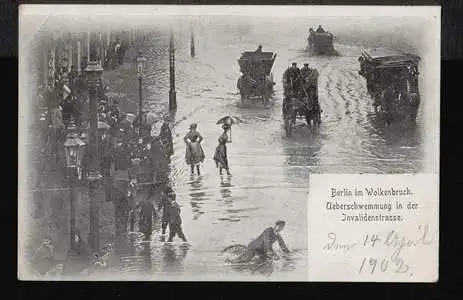 Berlin im Wolkenbruch.
Ueberschwemmung in der
Invalidenstrasse.
den 14 April
1902.